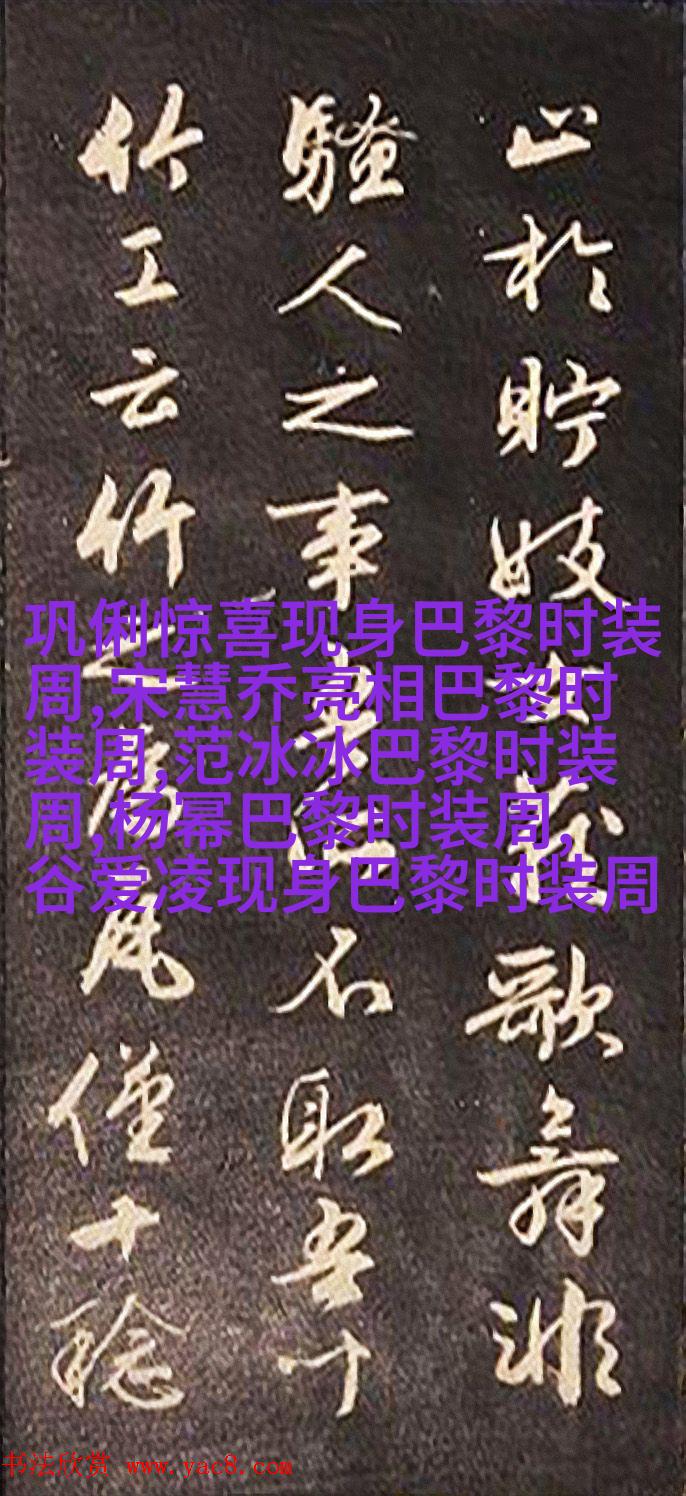 止於貯妓女藏歌舞非
騷人之事吾所不取吾聞
竹工云竹之為瓦僅十稔
巩俐惊喜现身巴黎时装
周,宋慧乔亮相巴黎时
装周,范冰冰巴黎时装
周,杨幂巴黎时装周,
谷爱凌现身巴黎时装周
书法欣赏 www.yac8.com